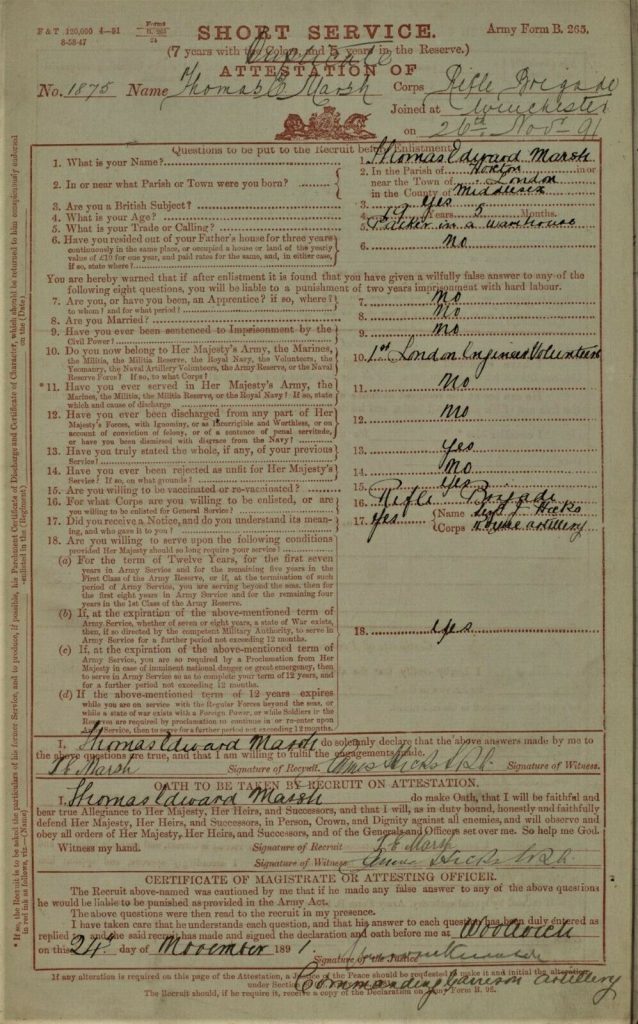 F & T 120,000 4—91
8-58-47
Forms
B. 265
24
SHORT SERVICE.
Army Form B. 265.
(7 years with the Colors, and 5 years in the Reserve.)
ATTESTATION OF
No. 1875 Name Thomas E Marsh Corps Rifle Brigade
Joined at Winchester
on 26th Novr 91
Questions to be put to the Recruit before Enlistment.
1. What is your Name?
1. Thomas Edward Marsh
2. In or near what Parish or Town were you born?
2. In the Parish of Hoxton in or
near the Town of London
in the County of Middlesex
3. Are you a British Subject?
3. Yes
4. What is your Age?
4. 19 Years 5 Months.
5. What is your Trade or Calling?
5. Packer in a warehouse
6. Have you resided out of your Father's house for three years
continuously in the same place, or occupied a house or land of the yearly
value of £10 for one year, and paid rates for the same, and, in either case,
if so, state where?
6. No
You are hereby warned that if after enlistment it is found that you have given a wilfully false answer to any of the
following eight questions, you will be liable to a punishment of two years imprisonment with hard labour.
7. Are you, or have you been, an Apprentice? if so, where?
to whom? and for what period?
7. No
8. Are you Married?
8. No
9. Have you ever been sentenced to Imprisonment by the
Civil Power?
9. No
10. Do you now belong to Her Majesty's Army, the Marines,
the Militia, the Militia Reserve, the Royal Navy, the Volunteers, the
Yeomanry, the Naval Artillery Volunteers, the Army Reserve, or the Naval
Reserve Force? If so, to what Corps?
10. 1st London Engineer Volunteers
*11. Have you ever served in Her Majesty's Army, the
Marines, the Militia, the Militia Reserve, or the Royal Navy? If so, state
which and cause of discharge
11. No
12. Have you ever been discharged from any part of Her
Majesty's Forces, with Ignominy, or as Incorrigible and Worthless, or on
account of conviction of felony, or of a sentence of penal servitude,
or have you been dismissed with disgrace from the Navy?
12. No
13. Have you truly stated the whole, if any, of your previous
Service?
13. Yes
14. Have you ever been rejected as unfit for Her Majesty's
Service? If so, on what grounds?
14. No
15. Are you willing to be vaccinated or re-vaccinated?
15. Yes
16. For what Corps are you willing to be enlisted, or are
you willing to be enlisted for General Service?
16. Rifle Brigade
17. Did you receive a Notice, and do you understand its mean-
ing, and who gave it to you?
17. Yes Name Sergt J Hicks
Corps Royal Artillery
18. Are you willing to serve upon the following conditions
provided Her Majesty should so long require your service?
(a) For the term of Twelve Years, for the first seven
years in Army Service and for the remaining five years in the
First Class of the Army Reserve, or if, at the termination of such
period of Army Service, you are serving beyond the seas, then for
the first eight years in Army Service and for the remaining four
years in the 1st Class of the Army Reserve.
(b) If, at the expiration of the above-mentioned term of
Army Service, whether of seven or eight years, a state of War exists,
then, if so directed by the competent Military Authority, to serve in
Army Service for a further period not exceeding 12 months.
18. Yes
(c) If, at the expiration of the above-mentioned term of
Army Service, you are so required by a Proclamation from Her
Majesty in case of imminent national danger or great emergency, then
to serve in Army Service so as to complete your term of 12 years, and
for a further period not exceeding 12 months.
(d) If the above-mentioned term of 12 years expires
while you are on service with the Regular Forces beyond the seas, or
while a state of war exists with a Foreign Power, or while Soldiers in the
Reserve are required by proclamation to continue in or re-enter upon
Army Service, then to serve for a further period not exceeding 12 months.
I, Thomas Edward Marsh do solemnly declare that the above answers made by me to
the above questions are true, and that I am willing to fulfil the engagements made.
T E Marsh Signature of Recruit. Hicks Signature of Witness.
OATH TO BE TAKEN BY RECRUIT ON ATTESTATION.
I, Thomas Edward Marsh do make Oath, that I will be faithful and
bear true Allegiance to Her Majesty, Her Heirs, and Successors, and that I will, as in duty bound, honestly and faithfully
defend Her Majesty, Her Heirs, and Successors, in Person, Crown, and Dignity against all enemies, and will observe and
obey all orders of Her Majesty, Her Heirs, and Successors, and of the Generals and Officers set over me. So help me God.
Witness my hand. Signature of Recruit T E Marsh
Signature of Witness Hicks
CERTIFICATE OF MAGISTRATE OR ATTESTING OFFICER.
The Recruit above-named was cautioned by me that if he made any false answer to any of the above questions
he would be liable to be punished as provided in the Army Act.
The above questions were then read to the recruit in my presence.
I have taken care that he understands each question, and that his answer to each question has been duly entered as
replied to, and the said recruit has made and signed the declaration and oath before me at Woolwich
on this 24th day of November 1891.
Signature of the Justice
Commanding Garrison Artillery
If any alteration is required on this page of the Attestation, a Justice of the Peace should be requested to make it and initial the alteration
under Section
The Recruit should, if he require, receive a copy of the Declaration on Army Form B. 95.
* If so, the Recruit is to be asked the particulars of his former Service, and to produce, if possible, his Parchment Certificate of Discharge and Certificate of Character, which should be returned to him conspicuously endorsed
in red ink as follows, viz.—(Name) enlisted in the (Regiment) on the (Date).